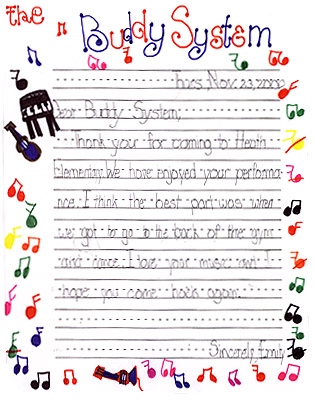 the Buddy System
Tues, Nov. 23,
Dear Buddy System,
Thank you for coming to Heath
Elementary. We have enjoyed your performa-
nce. I think the best part was when
we got to go to the back of the gym
and dance. I love your music and I
hope you come back again.
Sincerely, Emily